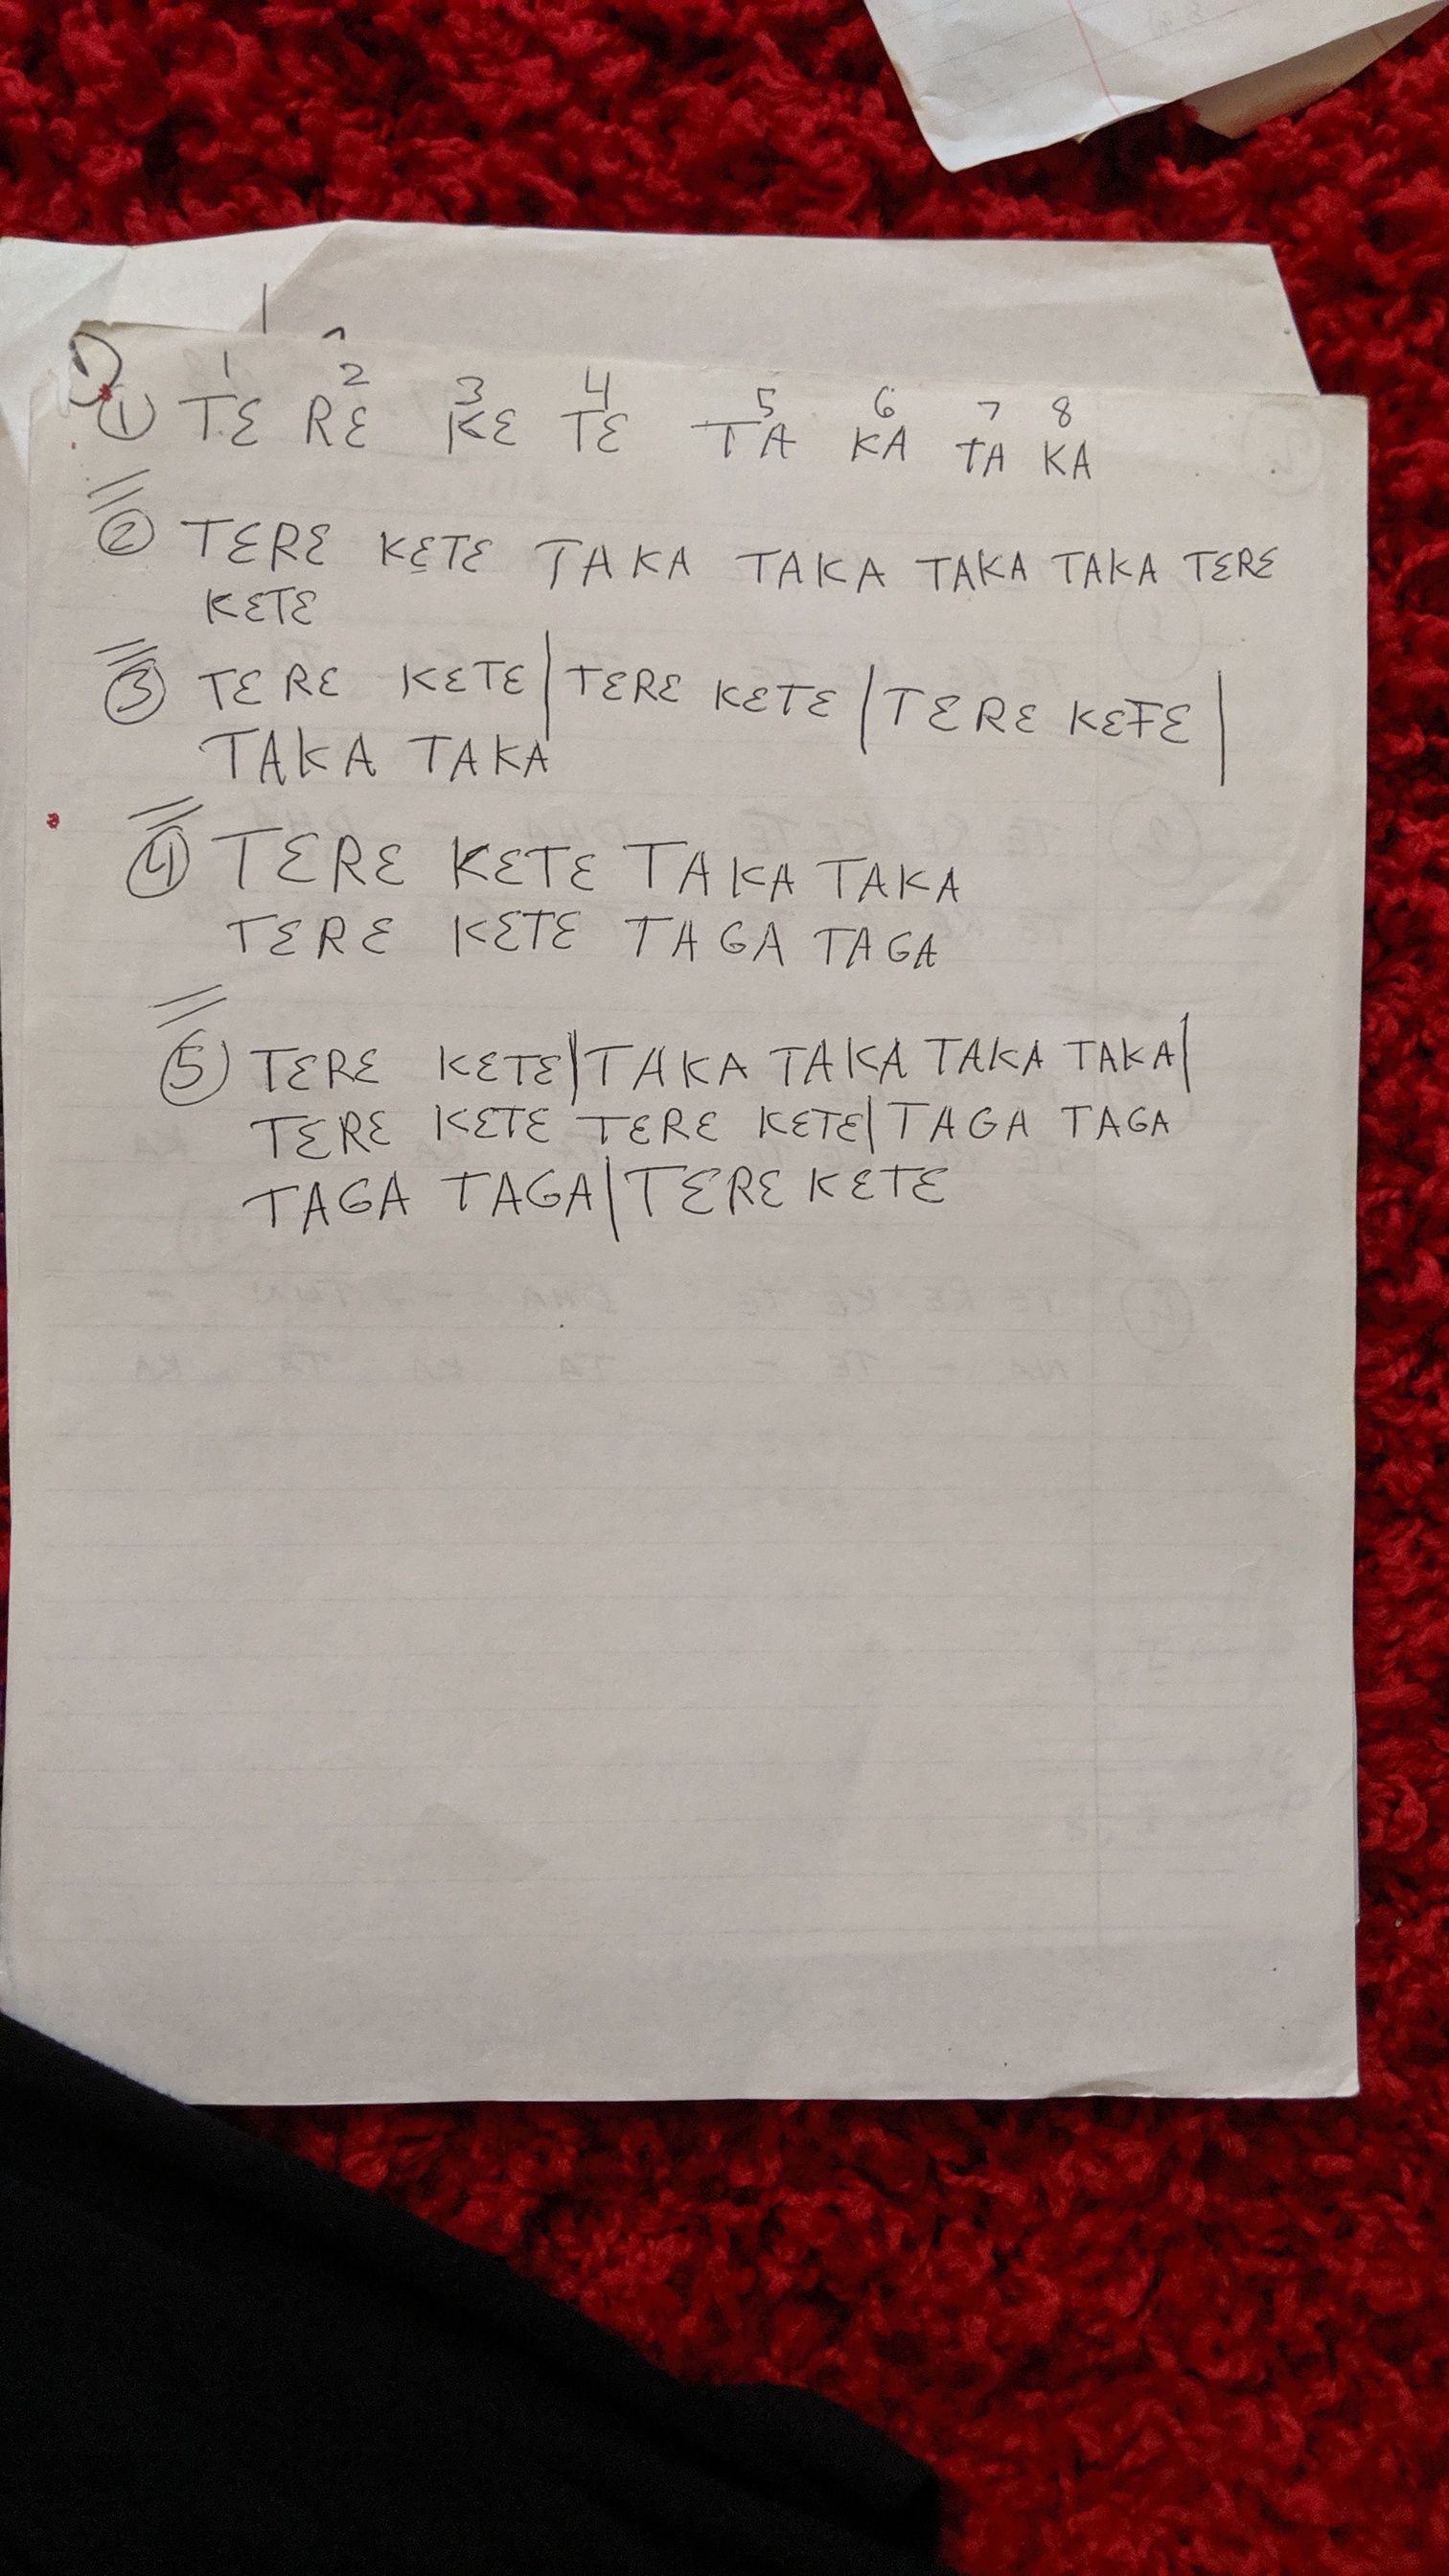 1 2 3 4 5 6 7 8
① TE RE KE TE TA KA TA KA
② TERE KETE TAKA TAKA TAKA TAKA TERE
KETE
③ TERE KETE | TERE KETE | TERE KETE |
TAKA TAKA
④ TERE KETE TAKA TAKA
TERE KETE TAGA TAGA
⑤ TERE KETE | TAKA TAKA TAKA TAKA |
TERE KETE TERE KETE | TAGA TAGA
TAGA TAGA | TERE KETE